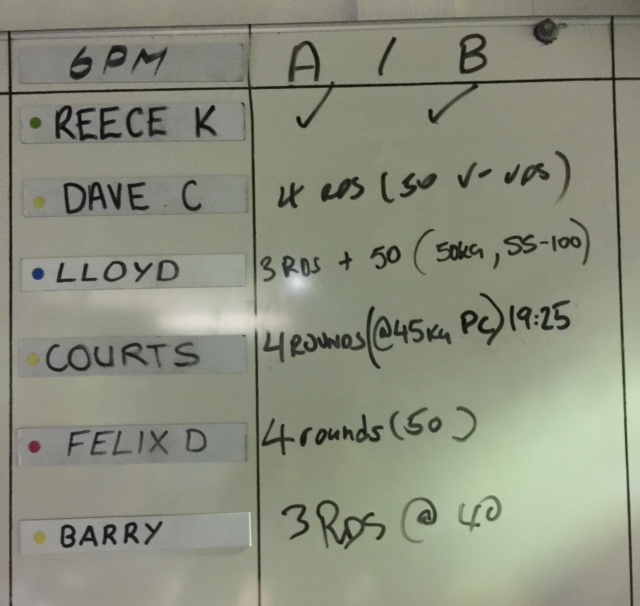 6PM A / B
REECE K ✓ ✓
DAVE C 4 RDS (50 V-UPS)
LLOYD 3 RDS + 50 (50KG, SS-100)
COURTS 4 ROUNDS (@45KG PC) 19:25
FELIX D 4 rounds (50)
BARRY 3 RDS @ 40